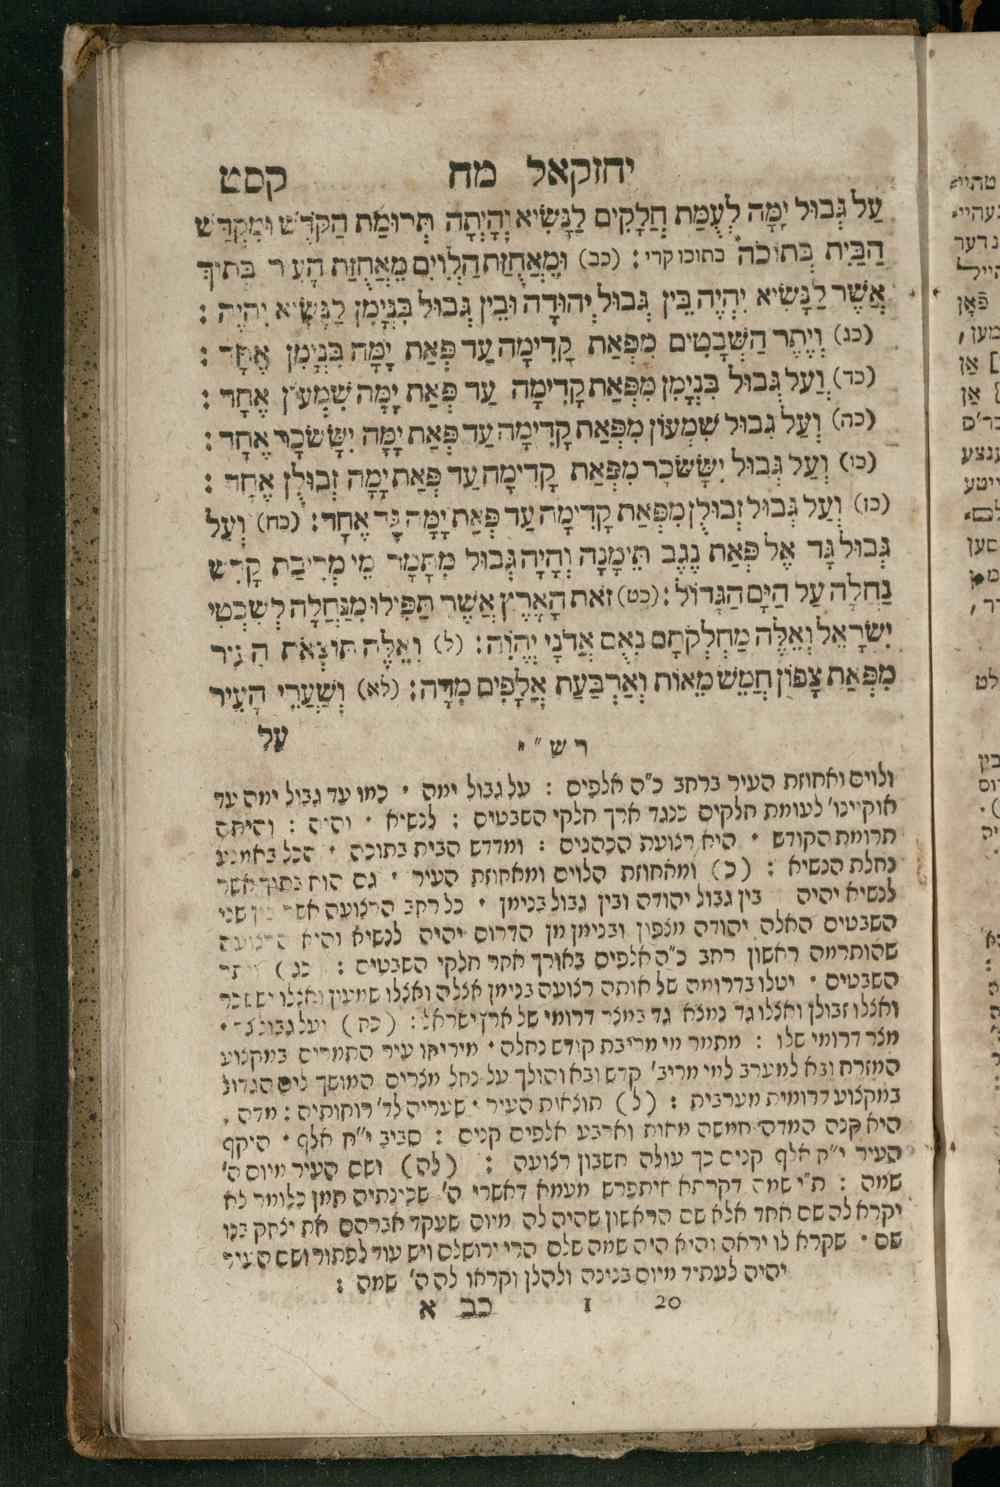 יחזקאל מח קסט
עַל גְּבוּל יָמָּה לְעֻמַּת חֲלָקִים לַנָּשִׂיא וְהָיְתָה תְּרוּמַת הַקֹּדֶשׁ וּמִקְדַּשׁ
הַבַּיִת בְּתוֹכֹה בתוכו קרי : (כב) וּמֵאֲחֻזַּת הַלְוִיִּם מֵאֲחֻזַּת הָעִיר בְּתוֹךְ
אֲשֶׁר לַנָּשִׂיא יִהְיֶה בֵּין גְּבוּל יְהוּדָה וּבֵין גְּבוּל בִּנְיָמִן לַנָּשִׂיא יִהְיֶה :
(כג) וְיֶתֶר הַשְּׁבָטִים מִפְּאַת קָדִימָה עַד פְּאַת יָמָּה בִּנְיָמִן אֶחָד :
(כד) וְעַל גְּבוּל בִּנְיָמִן מִפְּאַת קָדִימָה עַד פְּאַת יָמָּה שִׁמְעוֹן אֶחָד :
(כה) וְעַל גְּבוּל שִׁמְעוֹן מִפְּאַת קָדִימָה עַד פְּאַת יָמָּה יִשָּׂשׂכָר אֶחָד :
(כו) וְעַל גְּבוּל יִשָּׂשׂכָר מִפְּאַת קָדִימָה עַד פְּאַת יָמָּה זְבוּלֻן אֶחָד :
(כז) וְעַל גְּבוּל זְבוּלֻן מִפְּאַת קָדִימָה עַד פְּאַת יָמָּה גָּד אֶחָד : (כח) וְעַל
גְּבוּל גָּד אֶל פְּאַת נֶגֶב תֵּימָנָה וְהָיָה גְבוּל מִתָּמָר מֵי מְרִיבַת קָדֵשׁ
נַחֲלָה עַל הַיָּם הַגָּדוֹל : (כט) זֹאת הָאָרֶץ אֲשֶׁר תַּפִּילוּ מִנַּחֲלָה לְשִׁבְטֵי
יִשְׂרָאֵל וְאֵלֶּה מַחְלְקֹתָם נְאֻם אֲדֹנָי יֱהֹוִה : (ל) וְאֵלֶּה תּוֹצְאֹת הָעִיר
מִפְּאַת צָפוֹן חֲמֵשׁ מֵאוֹת וְאַרְבַּעַת אֲלָפִים מִדָּה : (לא) וְשַׁעֲרֵי הָעִיר
עַל
רש״י
ולוים ואחוזת העיר ברחב כ״ה אלפים : על גבול ימה • כמו עד גבול ימה עד
אוקיינו׳ לעומת חלקים כנגד ארך חלקי השבטים : לנשיא • והיה : והיתה
תרומת הקודש • היא רצועת הכהנים : ומקדש הבית בתוכה • הכל באמצע
נחלת הנשיא : (כ) ומאחוזת הלוים ומאחוזת העיר • גם הוא בתוך אשר
לנשיא יהיה בין גבול יהודה ובין גבול בנימן • כל רחב הרצועה אשר בין שני
השבטים האלה יהודה מצפון ובנימן מן הדרום יהיה לנשיא והיא הרצועה
שהותרמה ראשון רחב כ״ה אלפים באורך אחד חלקי השבטים : (כג) ויתר
השבטים • יטלו בדרומה של אותה רצועה בנימן אצלה ואצלו שמעון ואצלו יששכר
ואצלו זבולן ואצלו גד נמצא גד במצר דרומי של ארץ ישראל : (כח) ועל גבול גד •
מצר דרומי שלו : מתמר מי מריבת קודש נחלה • מיריחו עיר התמרים במקצוע
המזרח ובא למערב למי מריב׳ קדש ובא והולך על נחל מצרים המושך לים הגדול
במקצוע דרומית מערבית : (ל) תוצאות העיר • שעריה לד׳ רוחותיה : מדה .
היא קנה המדה חמשה מאות וארבע אלפים קנים : סביב י״ח אלף • היקף
העיר י״ח אלף קנים כך עולה חשבון רצועה : (לה) ושם העיר מיום ה׳
שמה : ת״י שמה דקרתא איתפרש מעמא דאשרי ה׳ שכינתיה תמן כלומר לא
יקרא לה שם אחד אלא שם הראשון שהיה לה מיום שעקד אברהם את יצחק בנו
שם • שקרא לו יראה והיא היה שמה שלם הרי ירושלם ויש עוד לפתור ושם העיר
יהיה לעתיד מיום בנינה ולהלן וקראו לה ה׳ שמה :
20 1 כב א